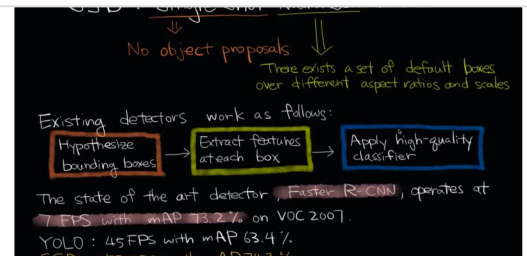 No object proposals
There exists a set of default boxes
over different aspect ratios and scales
Existing detectors work as follows:
Hypothesize
bounding boxes
Extract features
at each box
Apply high-quality
classifier
The state of the art detector, Faster R-CNN, operates at
7 FPS with mAP 73.2% on VOC 2007.
YOLO: 45 FPS with mAP 63.4%